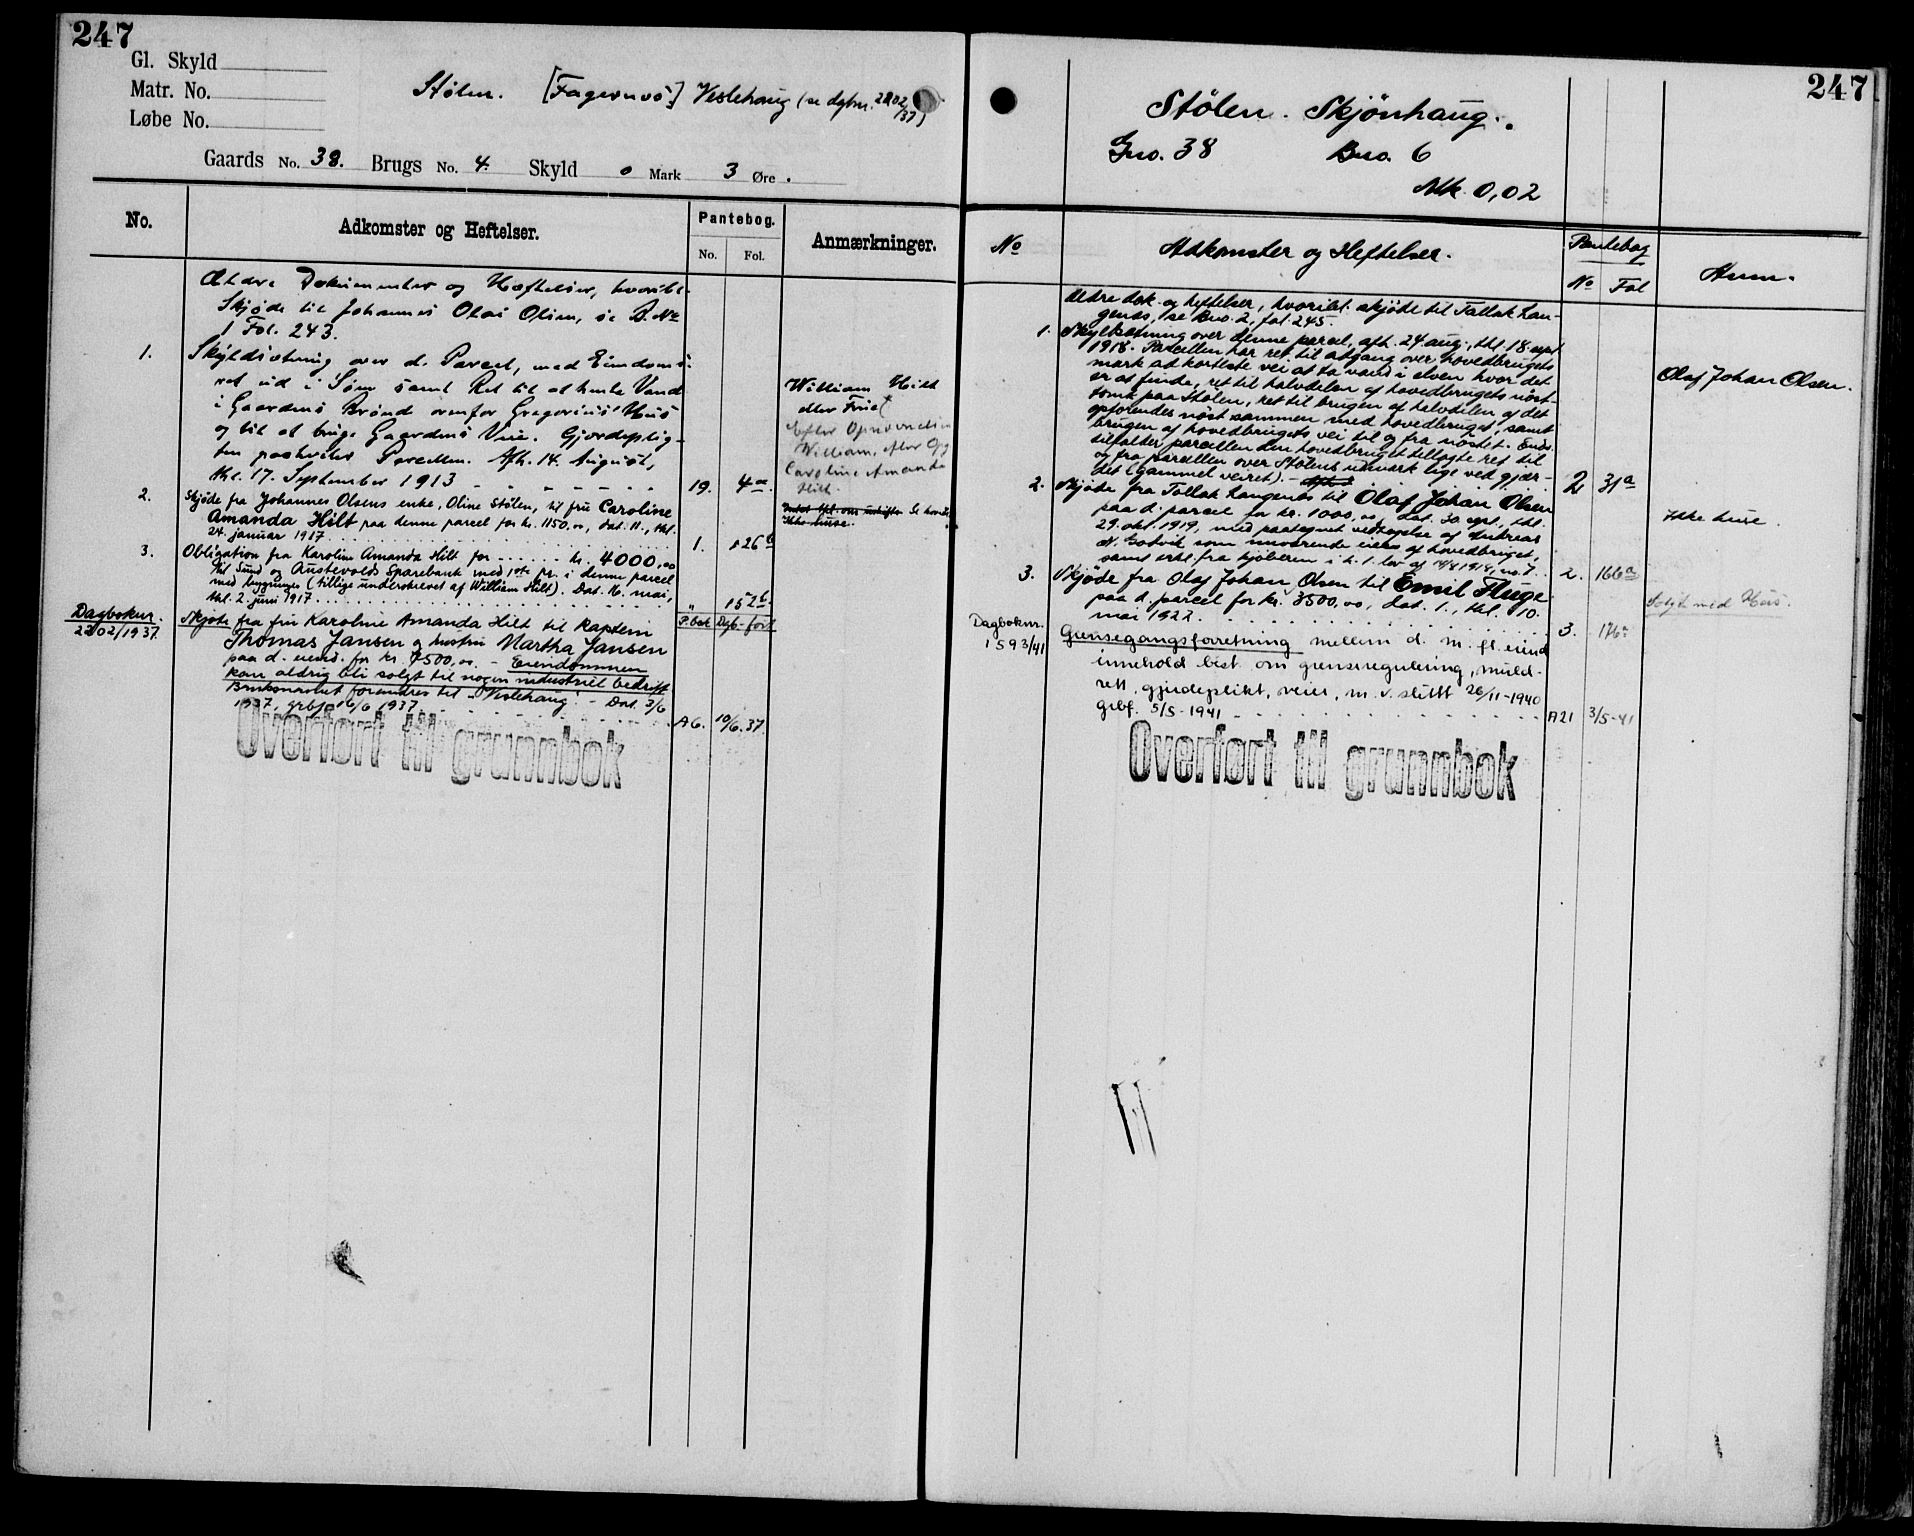 247
Gl. Skyld
Matr. No.
Løbe No.
Stølen. [Fagernes] Veslehaug (se dgbnr. 2202/37)
Gaards No. 38. Brugs No. 4. Skyld 0 Mark 3 Øre.
No.
Adkomster og Heftelser.
Pantebog.
No. Fol.
Anmærkninger.
Ældre Dokumenter og Hæftelser, hvoribl.
Skjøde til Johannes Olai Olsen, se B. No
1 Fol. 243.
1. Skyldsætning over d. Parcel, med Eiendoms-
ret ud i Søen samt Ret til at hente Vand
i Gaardens Brønd ovenfor Gregorius' Hus
og til at bruge Gaardens Veie. Gjerdeplig-
ten paahviler Parcellen. Afh. 14. August,
thl. 17. September 1913 19. 4a.
William Hild
eller Frue
Efter Opnævnelsen
William, efter Opg
Caroline Amanda
Hilt.
2. Skjøde fra Johannes Olsens enke, Oline Stølen, til fru Caroline
Amanda Hilt paa denne parcel for kr. 1150,00, dat. 11., thl.
24. januar 1917 1. 126b
Ikke huse.
3. Obligation fra Karoline Amanda Hilt for kr. 4000,00
til Sund og Austevolds Sparebank med 1ste pr. i denne parcel
med bygninger (tillige underskrevet af William Hilt). Dat. 16. mai,
thl. 2. juni 1917 " 152b.
Dagboknr.
2202/1937.
P.bok Dgb.-ført
Skjøte fra fru Karoline Amanda Hilt til kaptein
Thomas Jansen og hustru Martha Jansen
paa d. eiend. for kr. 7500,00. - Eiendommen
kan aldrig bli solgt til nogen industriel bedrift
Bruksnavnet forandres til "Veslehaug". - Dat. 3/6
1937, grbf. 16/6 1937 A6. 10/6.37
Overført til grunnbok
247
Stølen. Skjønhaug.
Gno. 38 Bno. 6
Mk. 0,02
No
Adkomster og Heftelser.
Pantebog
No Fol
Anm.
Ældre dok. og heftelser, hvoribl. skjøde til Tallak Lan-
genes, se Bno. 2, fol. 245.
1. Skyldsætning over denne parcel, afh. 24 aug., thl. 18. sept
1918. Parcellen har ret til adgang over hovedbrugets
mark ad korteste vei at ta vand i elven hvor det
er at finde, ret til halvdelen af hovedbrugets nøst-
tomt paa Stølen, ret til brugen af halvdelen af det
opførendes nøst sammen med hovedbruget, samt
brugen af hovedbrugets vei til og fra nøstet. Ends.
tilfalder parcellen den hovedbruget tillagte ret til
og fra parcellen over Stølens utmark lige ved gjær-
det (gammel veiret). 2 31a
Olaf Johan Olsen.
2. Skjøde fra Tallak Langenes til Olaf Johan Olsen
paa d. parcel for kr. 1000,00, dat. 30 sept., thl.
29. okt. 1919, med paategnet vedtagelse af Andreas
N. Golvik som nuværende eier af hovedbruget,
samt erkl. fra kjøberen i h. t. lov af 14/8 1918, no. 7. 2. 166a
Ikke huse.
3. Skjøde fra Olaf Johan Olsen til Emil Fluge
paa d. parcel for kr. 3500,00, dat. 1., thl. 10.
mai 1922. 3. 176a
Solgt med Hus.
Dagboknr.
1593/41
Grensegangsforretning mellem d. m. fl. eiend
innehold. best. om grenseregulering, muld-
rett, gjerdeplikt, veier, m. v. sluttt 26/11-1940
grbf. 5/5-1941 A21 3/5-41
Overført til grunnbok